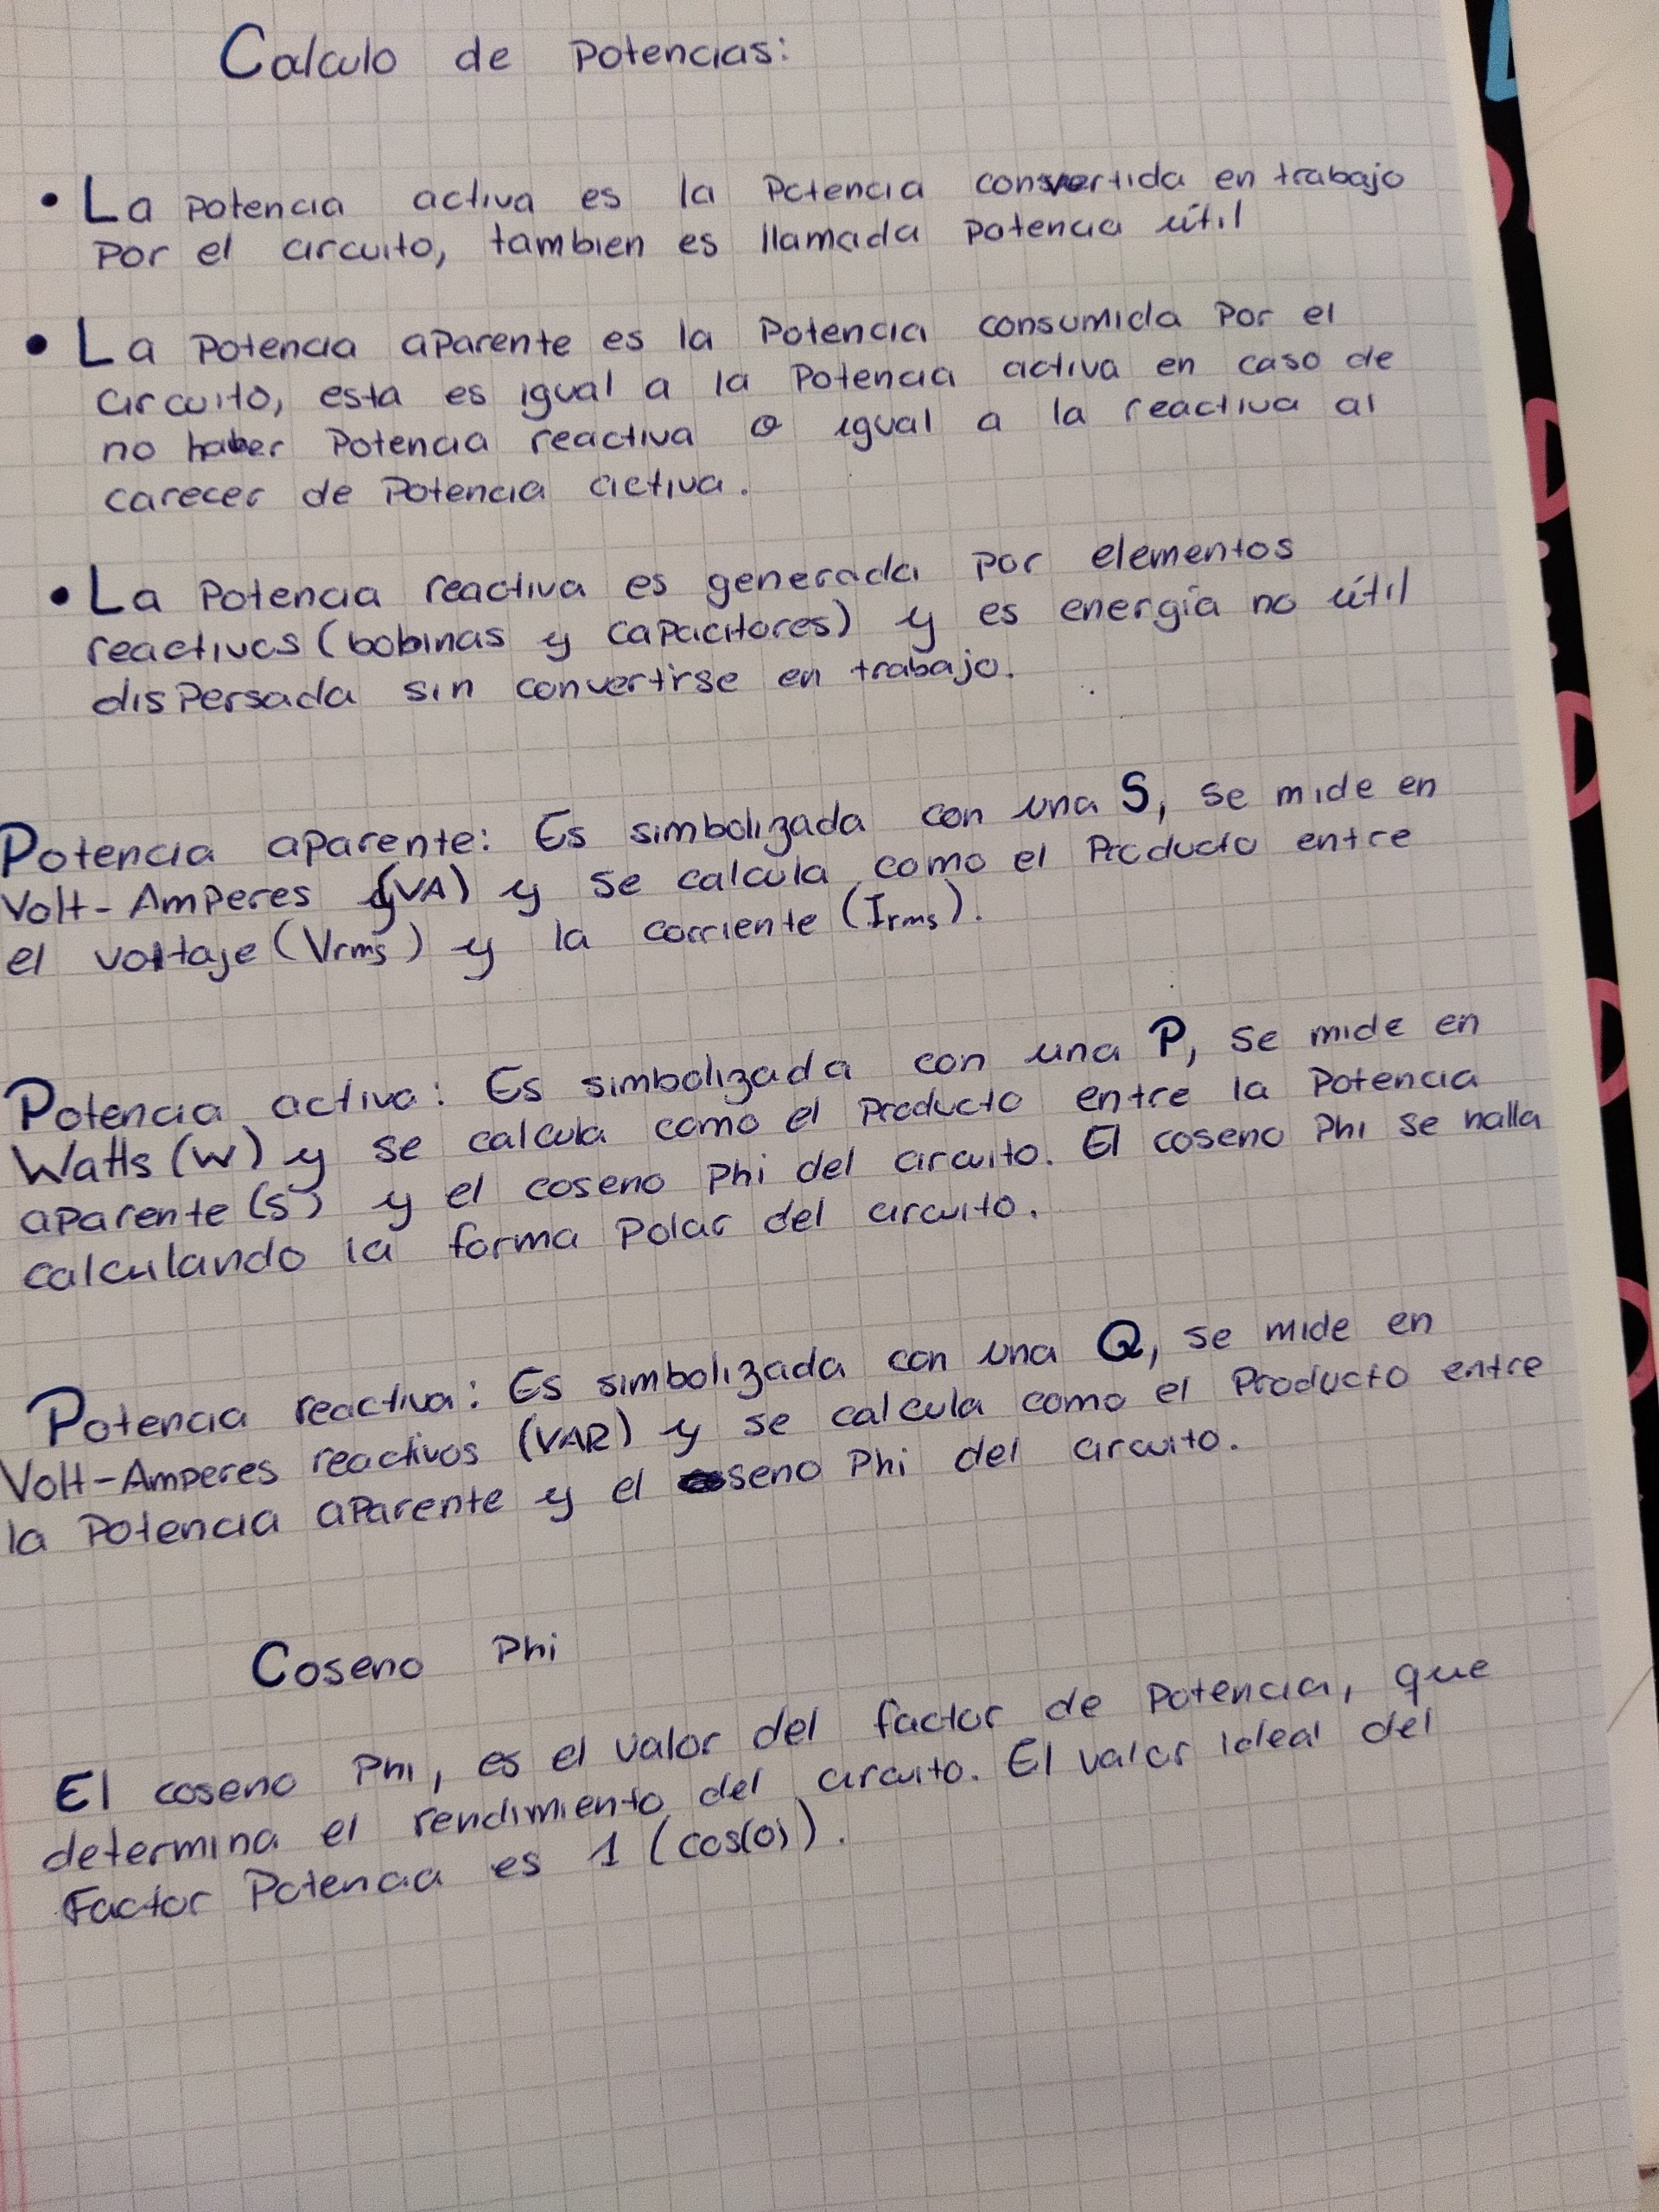 Calculo de potencias:
• La potencia activa es la potencia convertida en trabajo
por el circuito, tambien es llamada potencia útil
• La potencia aparente es la potencia consumida por el
circuito, esta es igual a la potencia activa en caso de
no haber potencia reactiva o igual a la reactiva al
carecer de potencia activa.
• La potencia reactiva es generada por elementos
reactivos (bobinas y capacitores) y es energía no útil
dispersada sin convertirse en trabajo.
Potencia aparente: Es simbolizada con una S, se mide en
Volt-Amperes (VA) y se calcula como el producto entre
el voltaje (Vrms) y la corriente (Irms).
Potencia activa: Es simbolizada con una P, se mide en
Watts (W) y se calcula como el producto entre la potencia
aparente (S) y el coseno phi del circuito. El coseno phi se halla
calculando la forma polar del circuito.
Potencia reactiva: Es simbolizada con una Q, se mide en
Volt-Amperes reactivos (VAR) y se calcula como el producto entre
la potencia aparente y el seno phi del circuito.
Coseno phi
El coseno phi, es el valor del factor de potencia, que
determina el rendimiento del circuito. El valor ideal del
Factor Potencia es 1 (cos(0)).